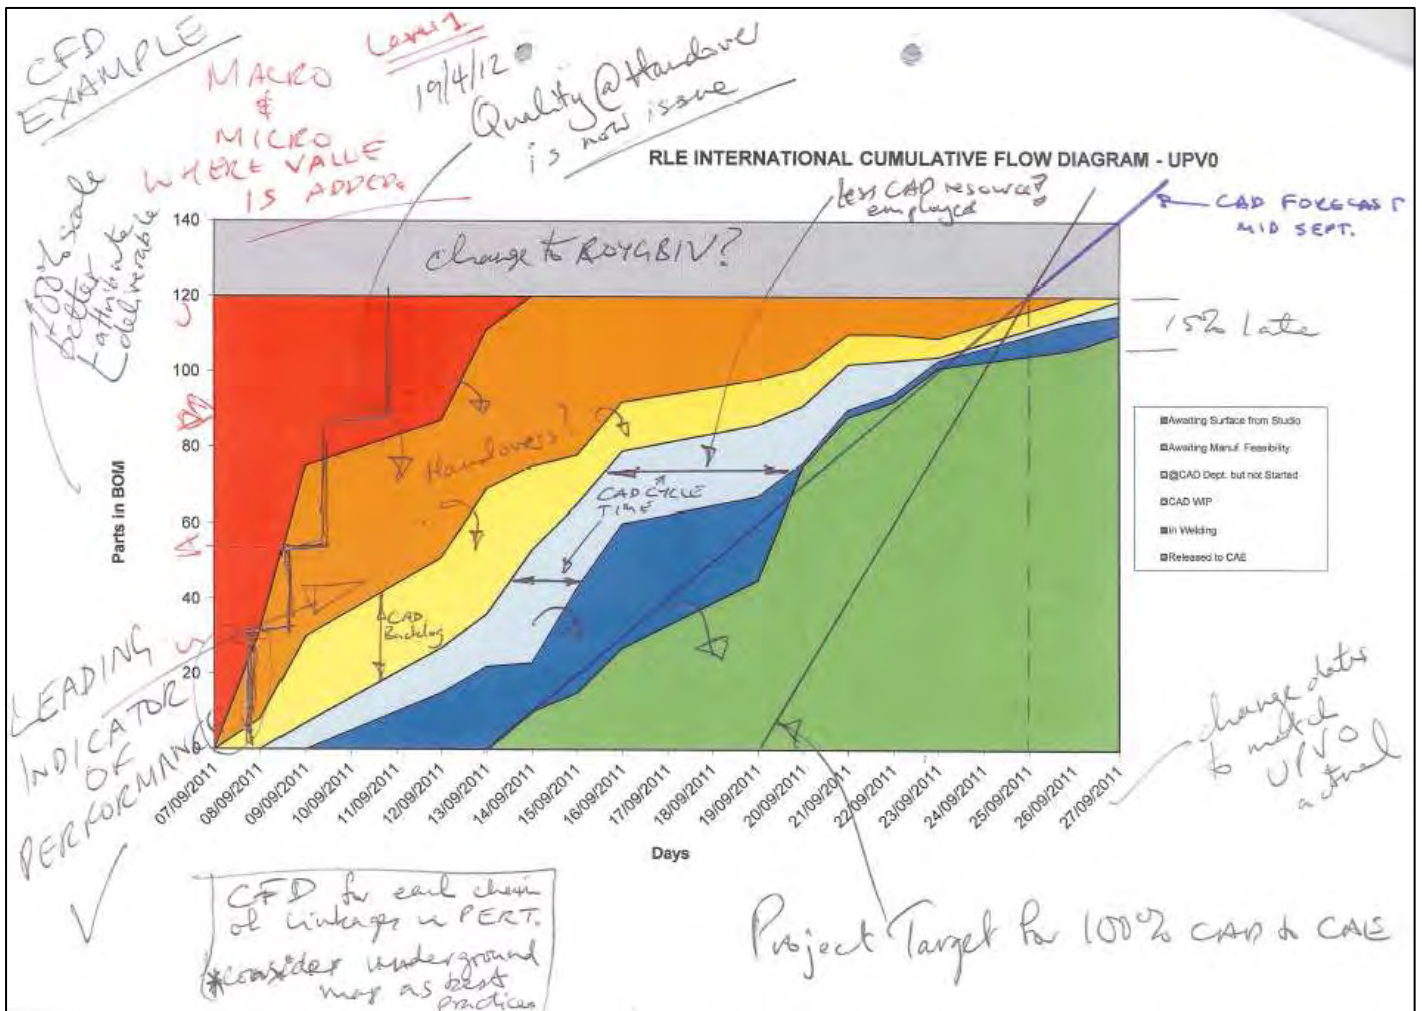 CFD
EXAMPLE
MACRO
&
MICRO
WHERE VALUE
IS ADDED.
Level 1
19/4/12
Quality @ Handover
is now issue
RLE INTERNATIONAL CUMULATIVE FLOW DIAGRAM - UPV0
less CAD resource?
employed
CAD FORECAST
MID SEPT.
100% scale
better
attribute
deliverable
change to ROYGBIV?
15% late
140
120
100
80
60
40
20
0
Parts in BOM
Handovers?
CAD CYCLE
TIME
CAD
Backlog
Awaiting Surface from Studio
Awaiting Manuf. Feasibility
@CAD Dept. but not Started
CAD WIP
In Welding
Released to CAE
LEADING
INDICATOR
OF
PERFORMANCE
07/09/2011
08/09/2011
09/09/2011
10/09/2011
11/09/2011
12/09/2011
13/09/2011
14/09/2011
15/09/2011
16/09/2011
17/09/2011
18/09/2011
19/09/2011
20/09/2011
21/09/2011
22/09/2011
23/09/2011
24/09/2011
25/09/2011
26/09/2011
27/09/2011
Days
change dates
to match
UPVO
actual
CFD for each chain
of linkages in PERT.
*consider underground
map as best
practices
Project Target for 100% CAD to CAE